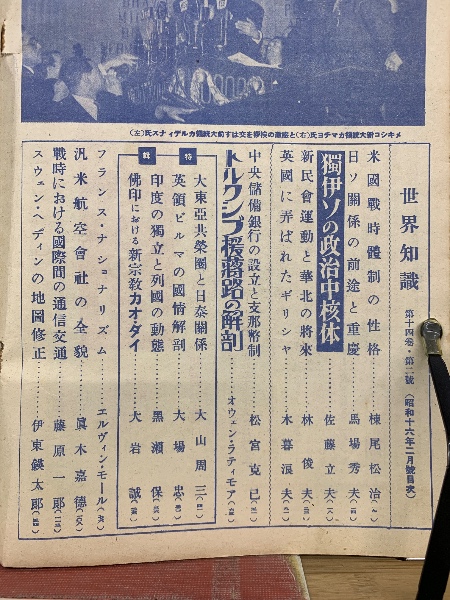 メキシコ新大統領カマチョ氏(右)と握手の挨拶を交はす前大統領カルデイナス氏(左)
世界知識
第十四卷・第二號 (昭和十六年二月號目次)
米國戰時體制の性格………棟尾松治
日ソ關係の前途と重慶………馬場秀夫
獨伊ソの政治中核体………佐藤立夫
新民會運動と華北の將來………林俊夫
英國に弄ばれたギリシヤ………木暮浪夫
中央儲備銀行の設立と支那幣制………松宮克已
トルクシブ援蔣路の解剖………オウェン・ラティモア
特輯
大東亞共榮圈と日泰關係………大山周三
英領ビルマの國情解剖………大場忠
印度の獨立と列國の動態………黑瀬保
佛印における新宗教カオダイ………大岩誠
フランス・ナショナリズム………エルヴィン・モール
汎米航空會社の全貌………眞木嘉德
戰時における國際間の通信交通………藤原一郎
スウェン・ヘディンの地圖修正………伊東鍈太郎